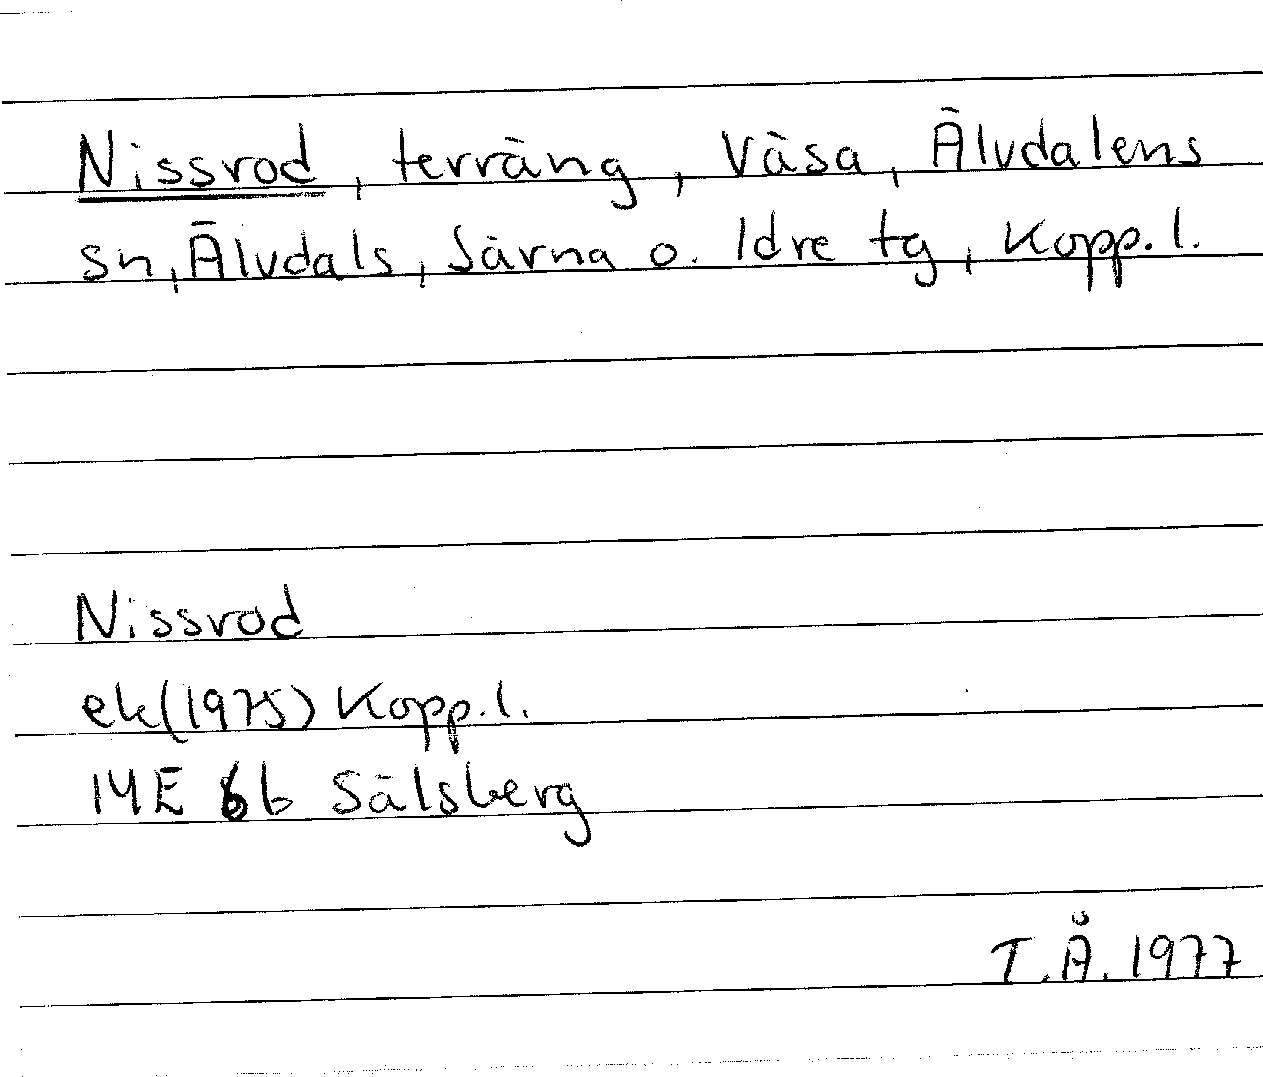 Nissrod, terräng, Väsa, Älvdalens
sn, Älvdals, Särna o. Idre tg, Kopp. l.
Nissrod
ek (1975) Kopp. l.
14E 6b Sälsberg
T.Å. 1977